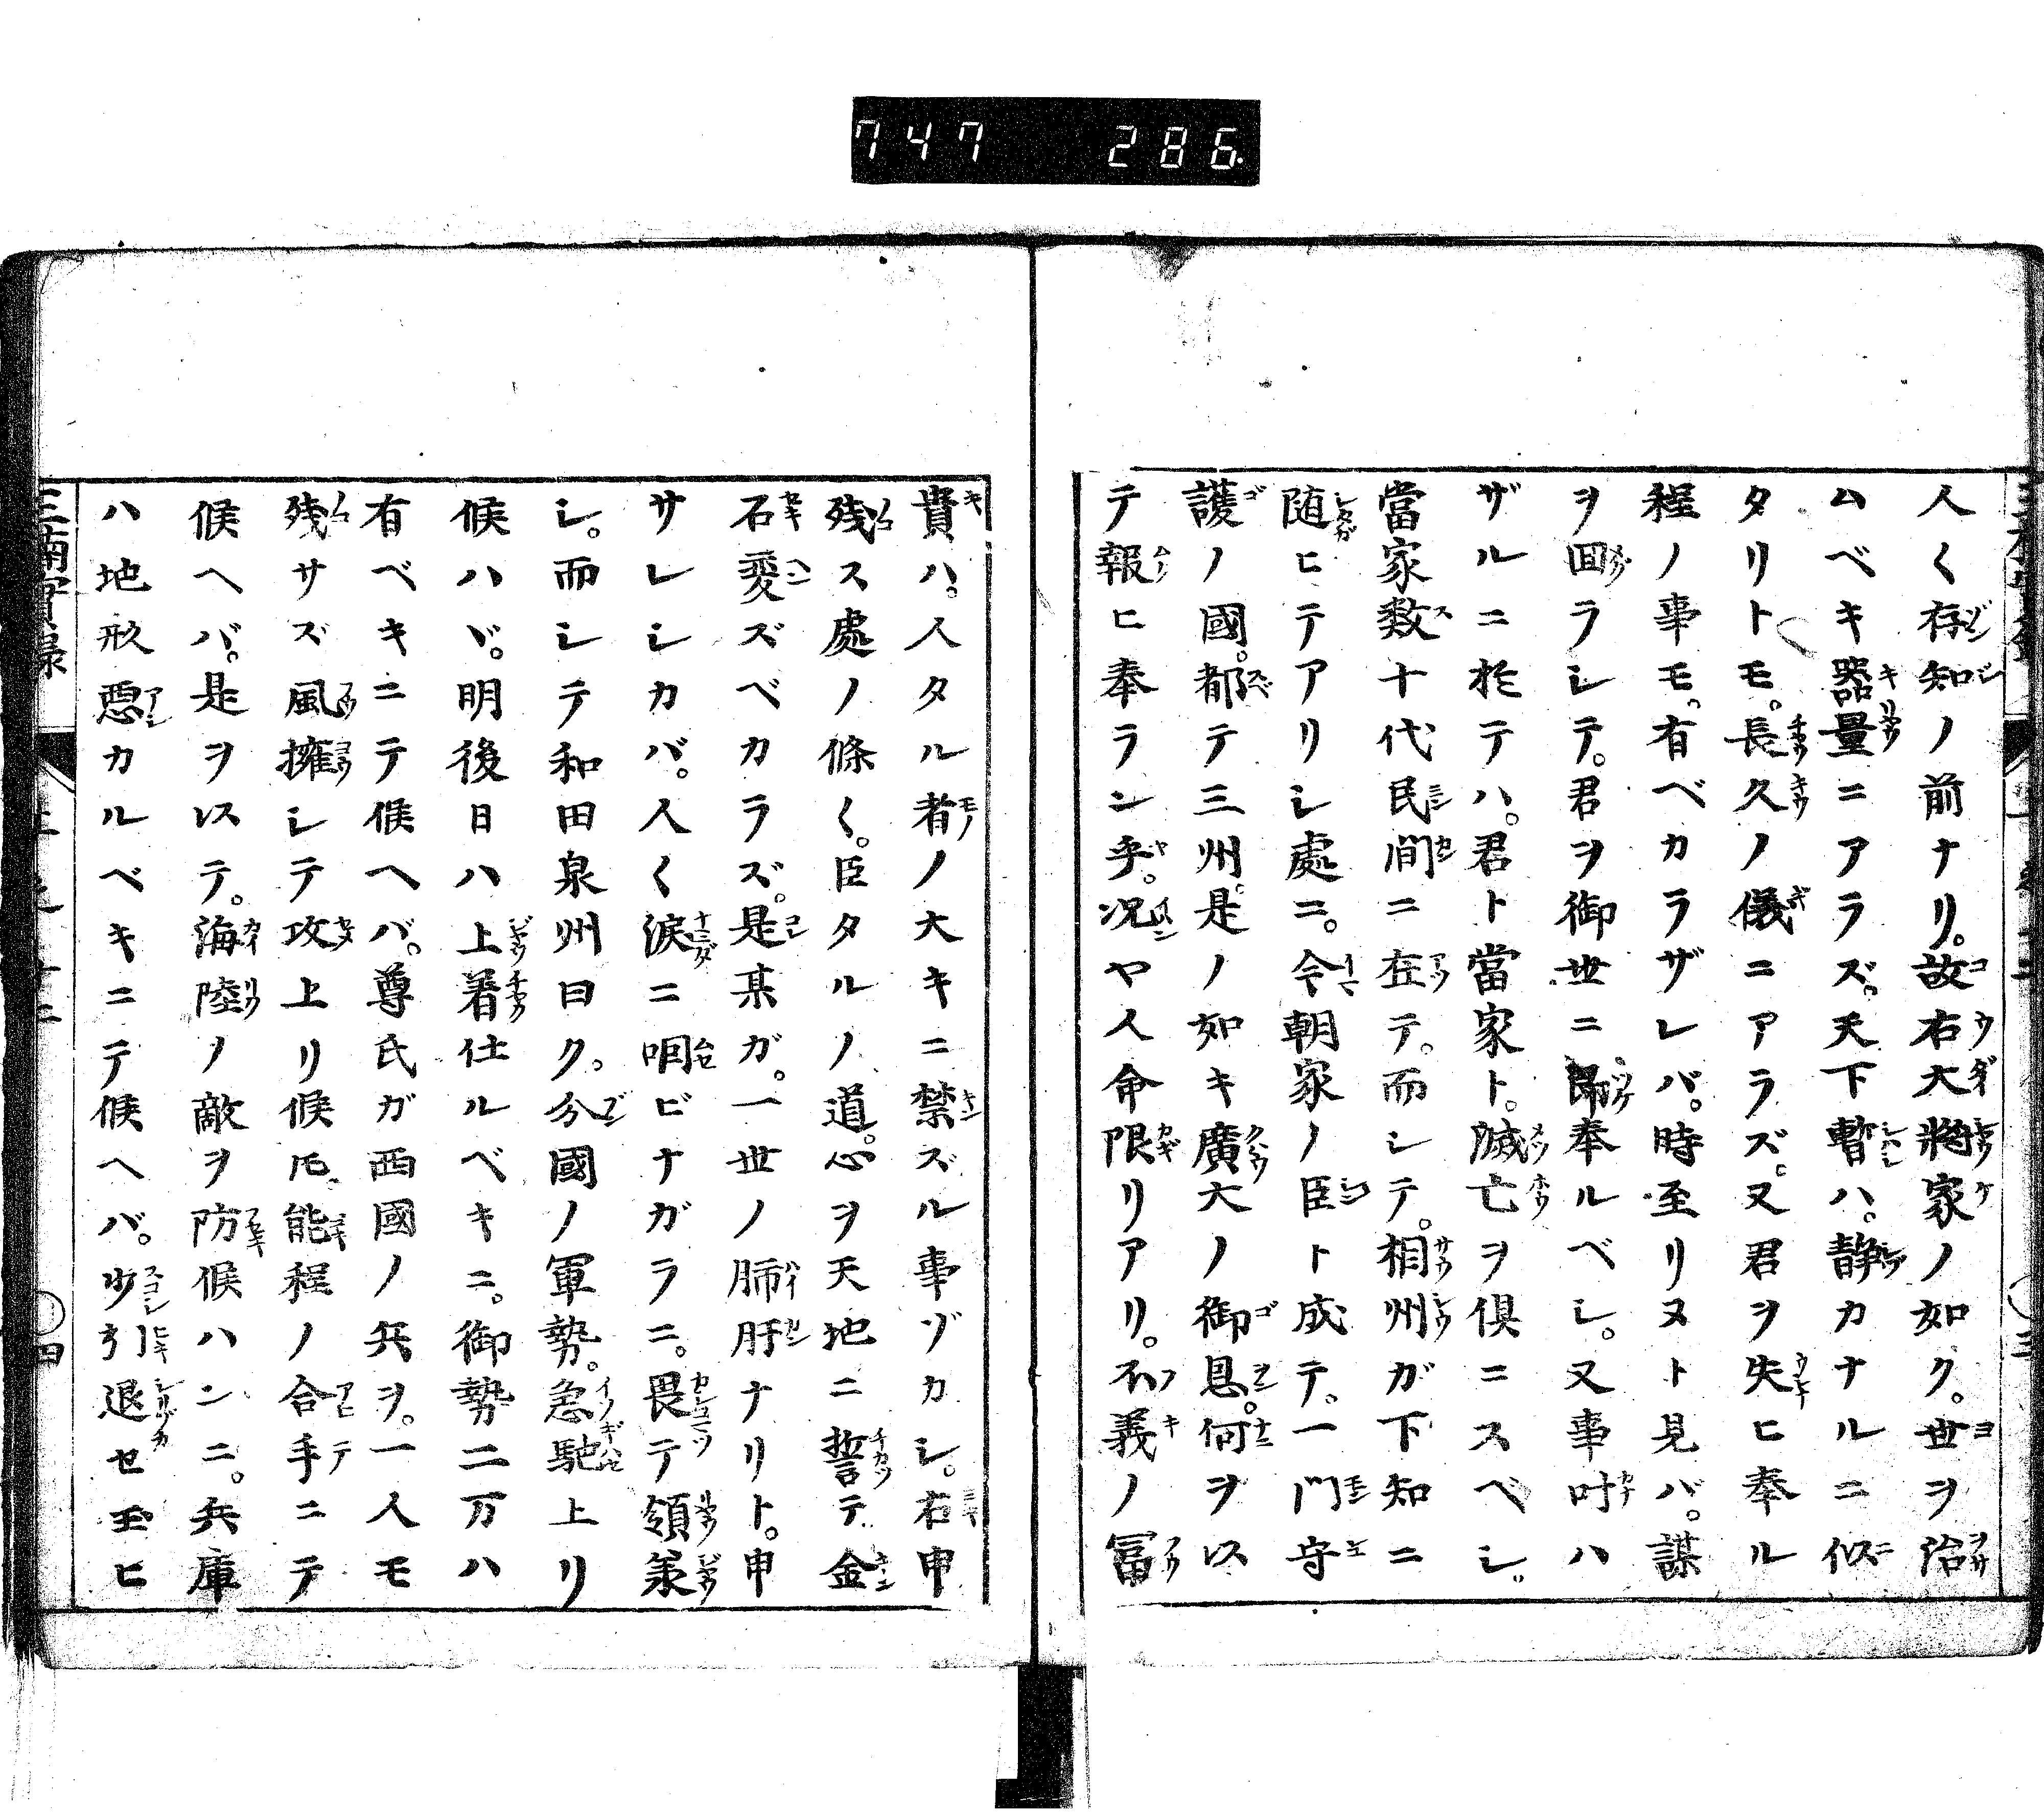 747 286.
人〱存知ノ前ナリ。故右大將家ノ如ク。世ヲ治
ムベキ器量ニアラズ。天下暫ハ。静カナルニ似
タリトモ。長久ノ儀ニアラズ。又君ヲ失ヒ奉ル
程ノ事モ。有ベカラザレバ。時至リヌト見バ。謀
ヲ囬ラシテ。君ヲ御世ニ即奉ルベシ。又事叶ハ
ザルニ於テハ。君ト當家ト。滅亡ヲ倶ニスベシ。
當家数十代民間ニ在テ。而シテ。相州ガ下知ニ
随ヒテアリシ處ニ。今朝家ノ臣ト成テ。一門守
護ノ國。都テ三州。是ノ如キ廣大ノ御恩。何ヲ以
テ報ヒ奉ラン乎。况ヤ人命限リアリ。不義ノ冨
貴ハ。人タル者ノ大キニ禁ズル事ゾカシ。右申
残ス處ノ條〱。臣タルノ道。心ヲ天地ニ誓テ金
石変ズベカラズ。是某ガ。一世ノ肺肝ナリト。申
サレシカバ。人〱涙ニ咽ビナガラニ。畏テ領掌
シ。而シテ和田泉州曰ク。分國ノ軍勢。急馳上リ
候ハヾ。明後日ハ上着仕ルベキニ。御勢二万ハ
有ベキニテ候ヘバ。尊氏ガ西國ノ兵ヲ。一人モ
残サズ風擁シテ攻上リ候𪜈。能程ノ合手ニテ
候ヘバ。是ヲ以テ。海陸ノ敵ヲ防候ハンニ。兵庫
ハ地形悪カルベキニテ候ヘバ。少引退セ玉ヒ
三楠實録
四